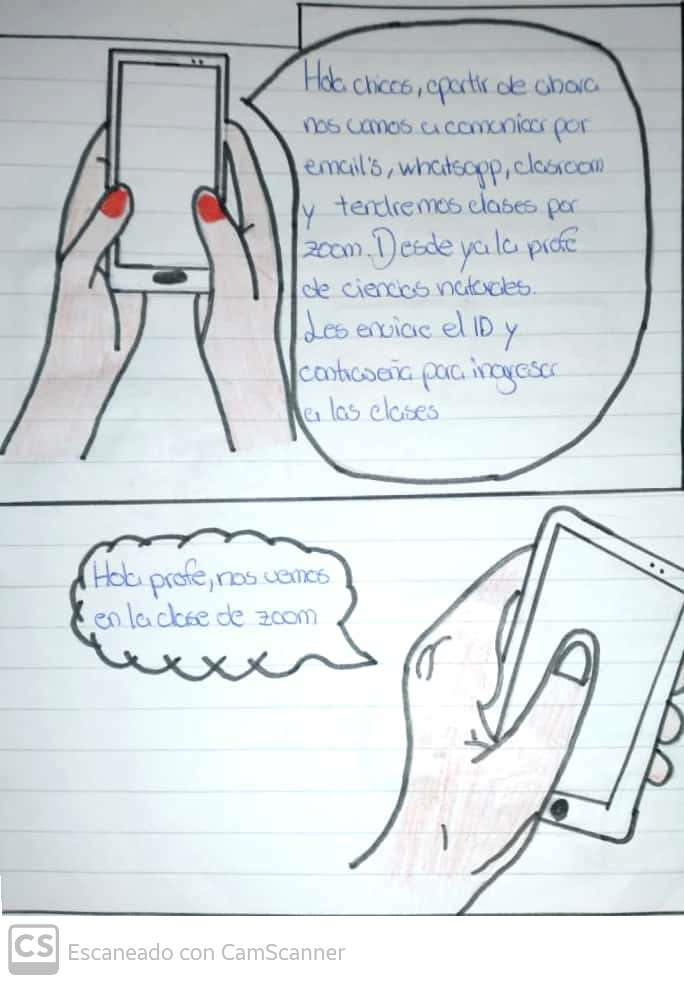 Hola chicos, apartir de ahora
nos vamos a comunicar por
email's, whatsapp, clasroom
y tendremos clases por
zoom. Desde ya la profe
de ciencias naturales.
Les enviare el ID y
contraseña para ingresar
a las clases
Hola profe, nos vemos
en la clase de zoom
CS Escaneado con CamScanner